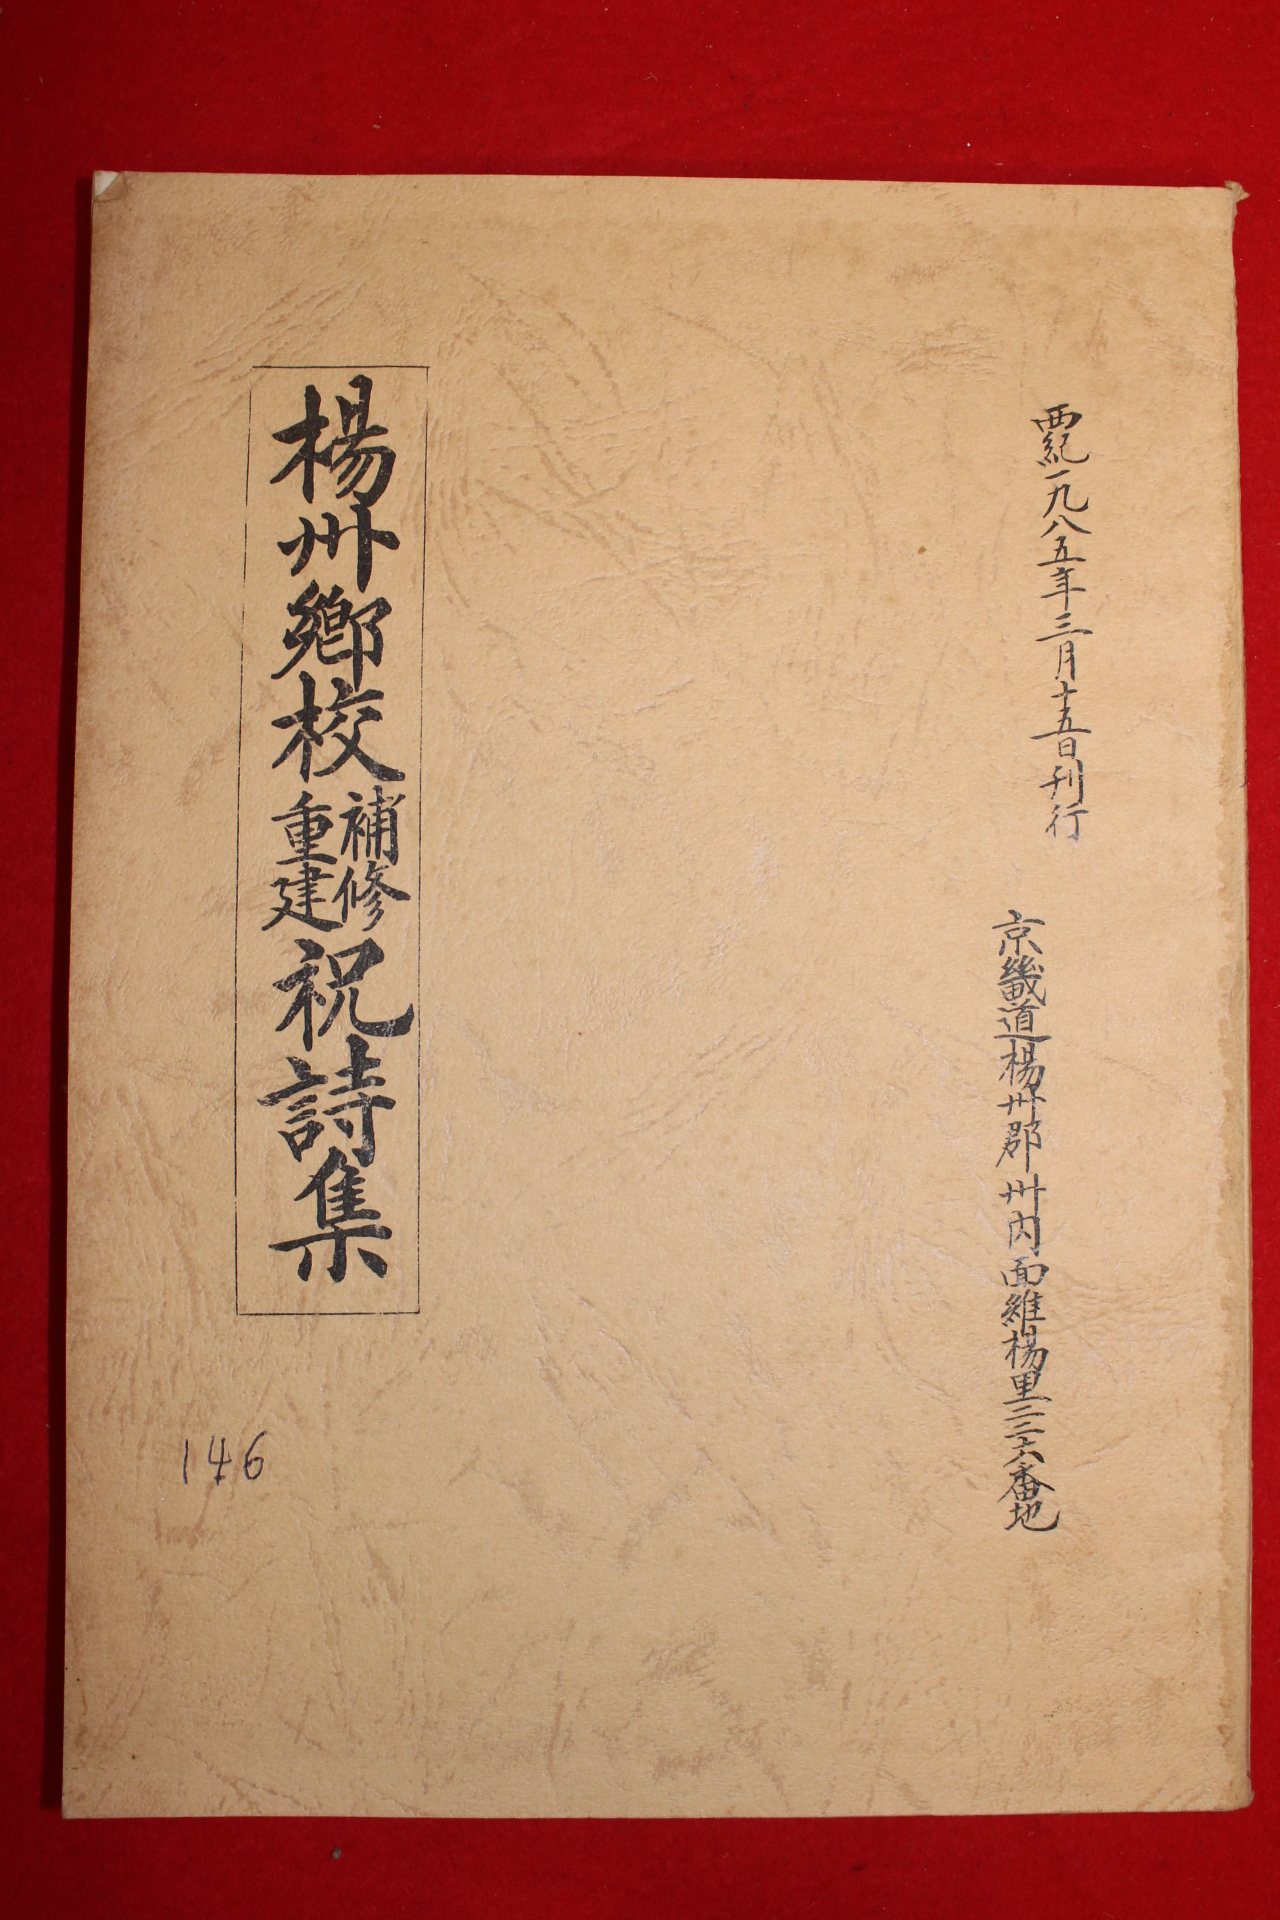 西紀一九八五年三月十五日刊行
京畿道楊州郡 州内面維楊里二三六番地
楊州鄕校補修重建祝詩集
146